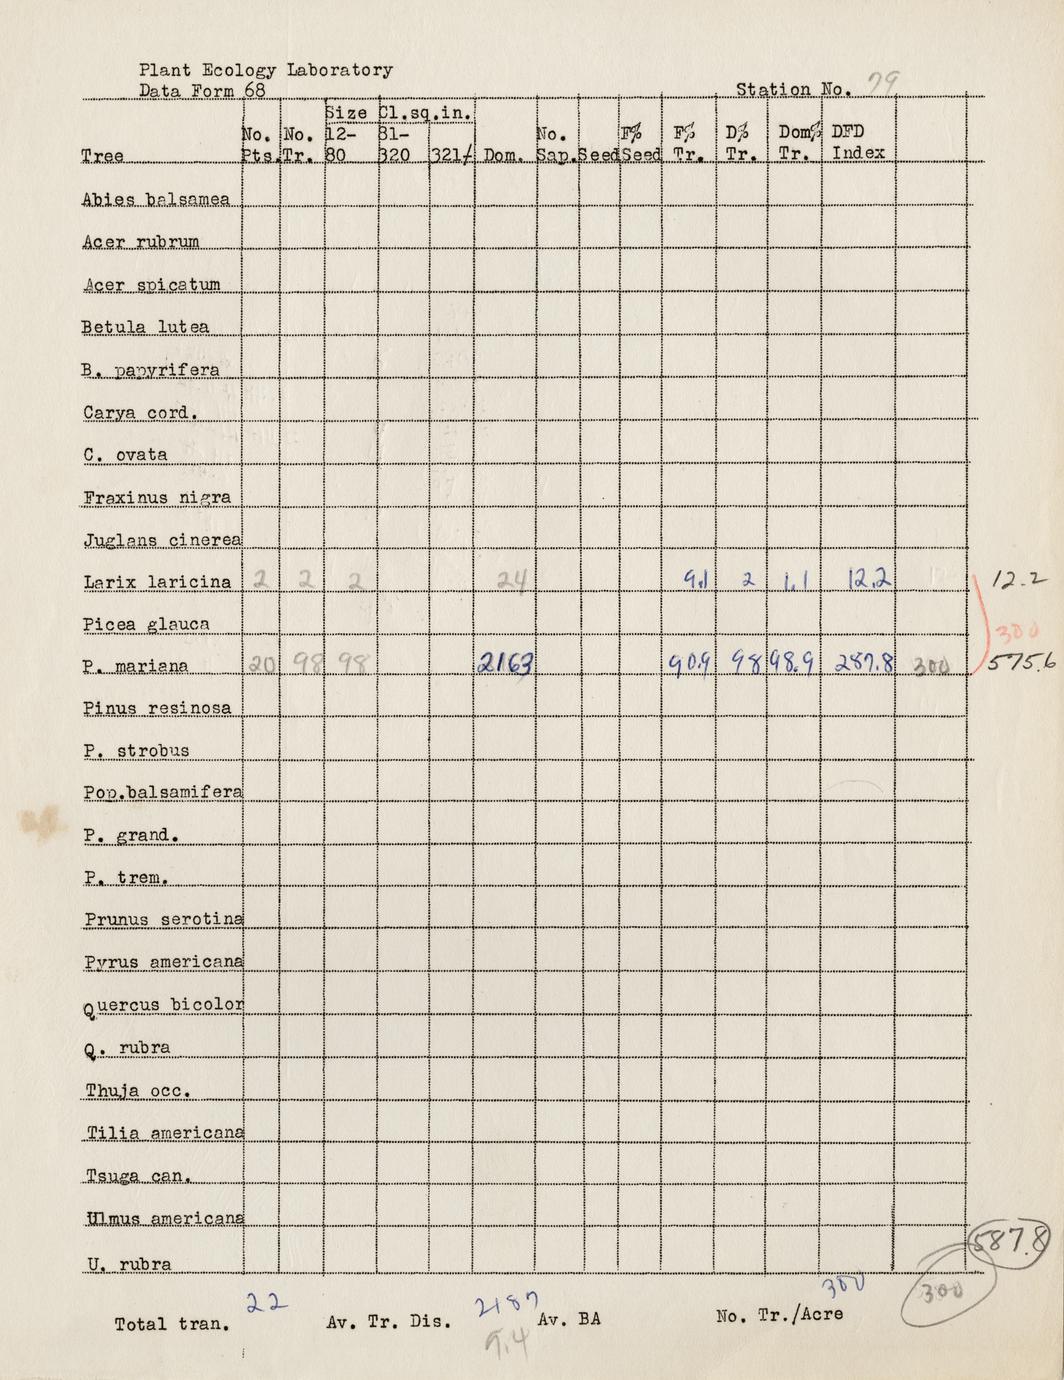 Plant Ecology Laboratory
Data Form 68 Station No. 79
Size Cl.sq.in.
No. No. 12- 81- No. F% F% D% Dom% DFD
Tree Pts. Tr. 80 320 321/ Dom. Sap. Seed Seed Tr. Tr. Tr. Index
Abies balsamea
Acer rubrum
Acer spicatum
Betula lutea
B. papyrifera
Carya cord.
C. ovata
Fraxinus nigra
Juglans cinerea
Larix laricina 2 2 2 24 9.1 2 1.1 12.2 12.2
Picea glauca 300
P. mariana 20 98 98 2163 90.9 98 98.9 287.8 300 575.6
Pinus resinosa
P. strobus
Pop.balsamifera
P. grand.
P. trem.
Prunus serotina
Pyrus americana
Quercus bicolor
Q. rubra
Thuja occ.
Tilia americana
Tsuga can.
Ulmus americana
587.8
U. rubra
22 2187 300 300
Total tran. Av. Tr. Dis. Av. BA No. Tr./Acre
9.4